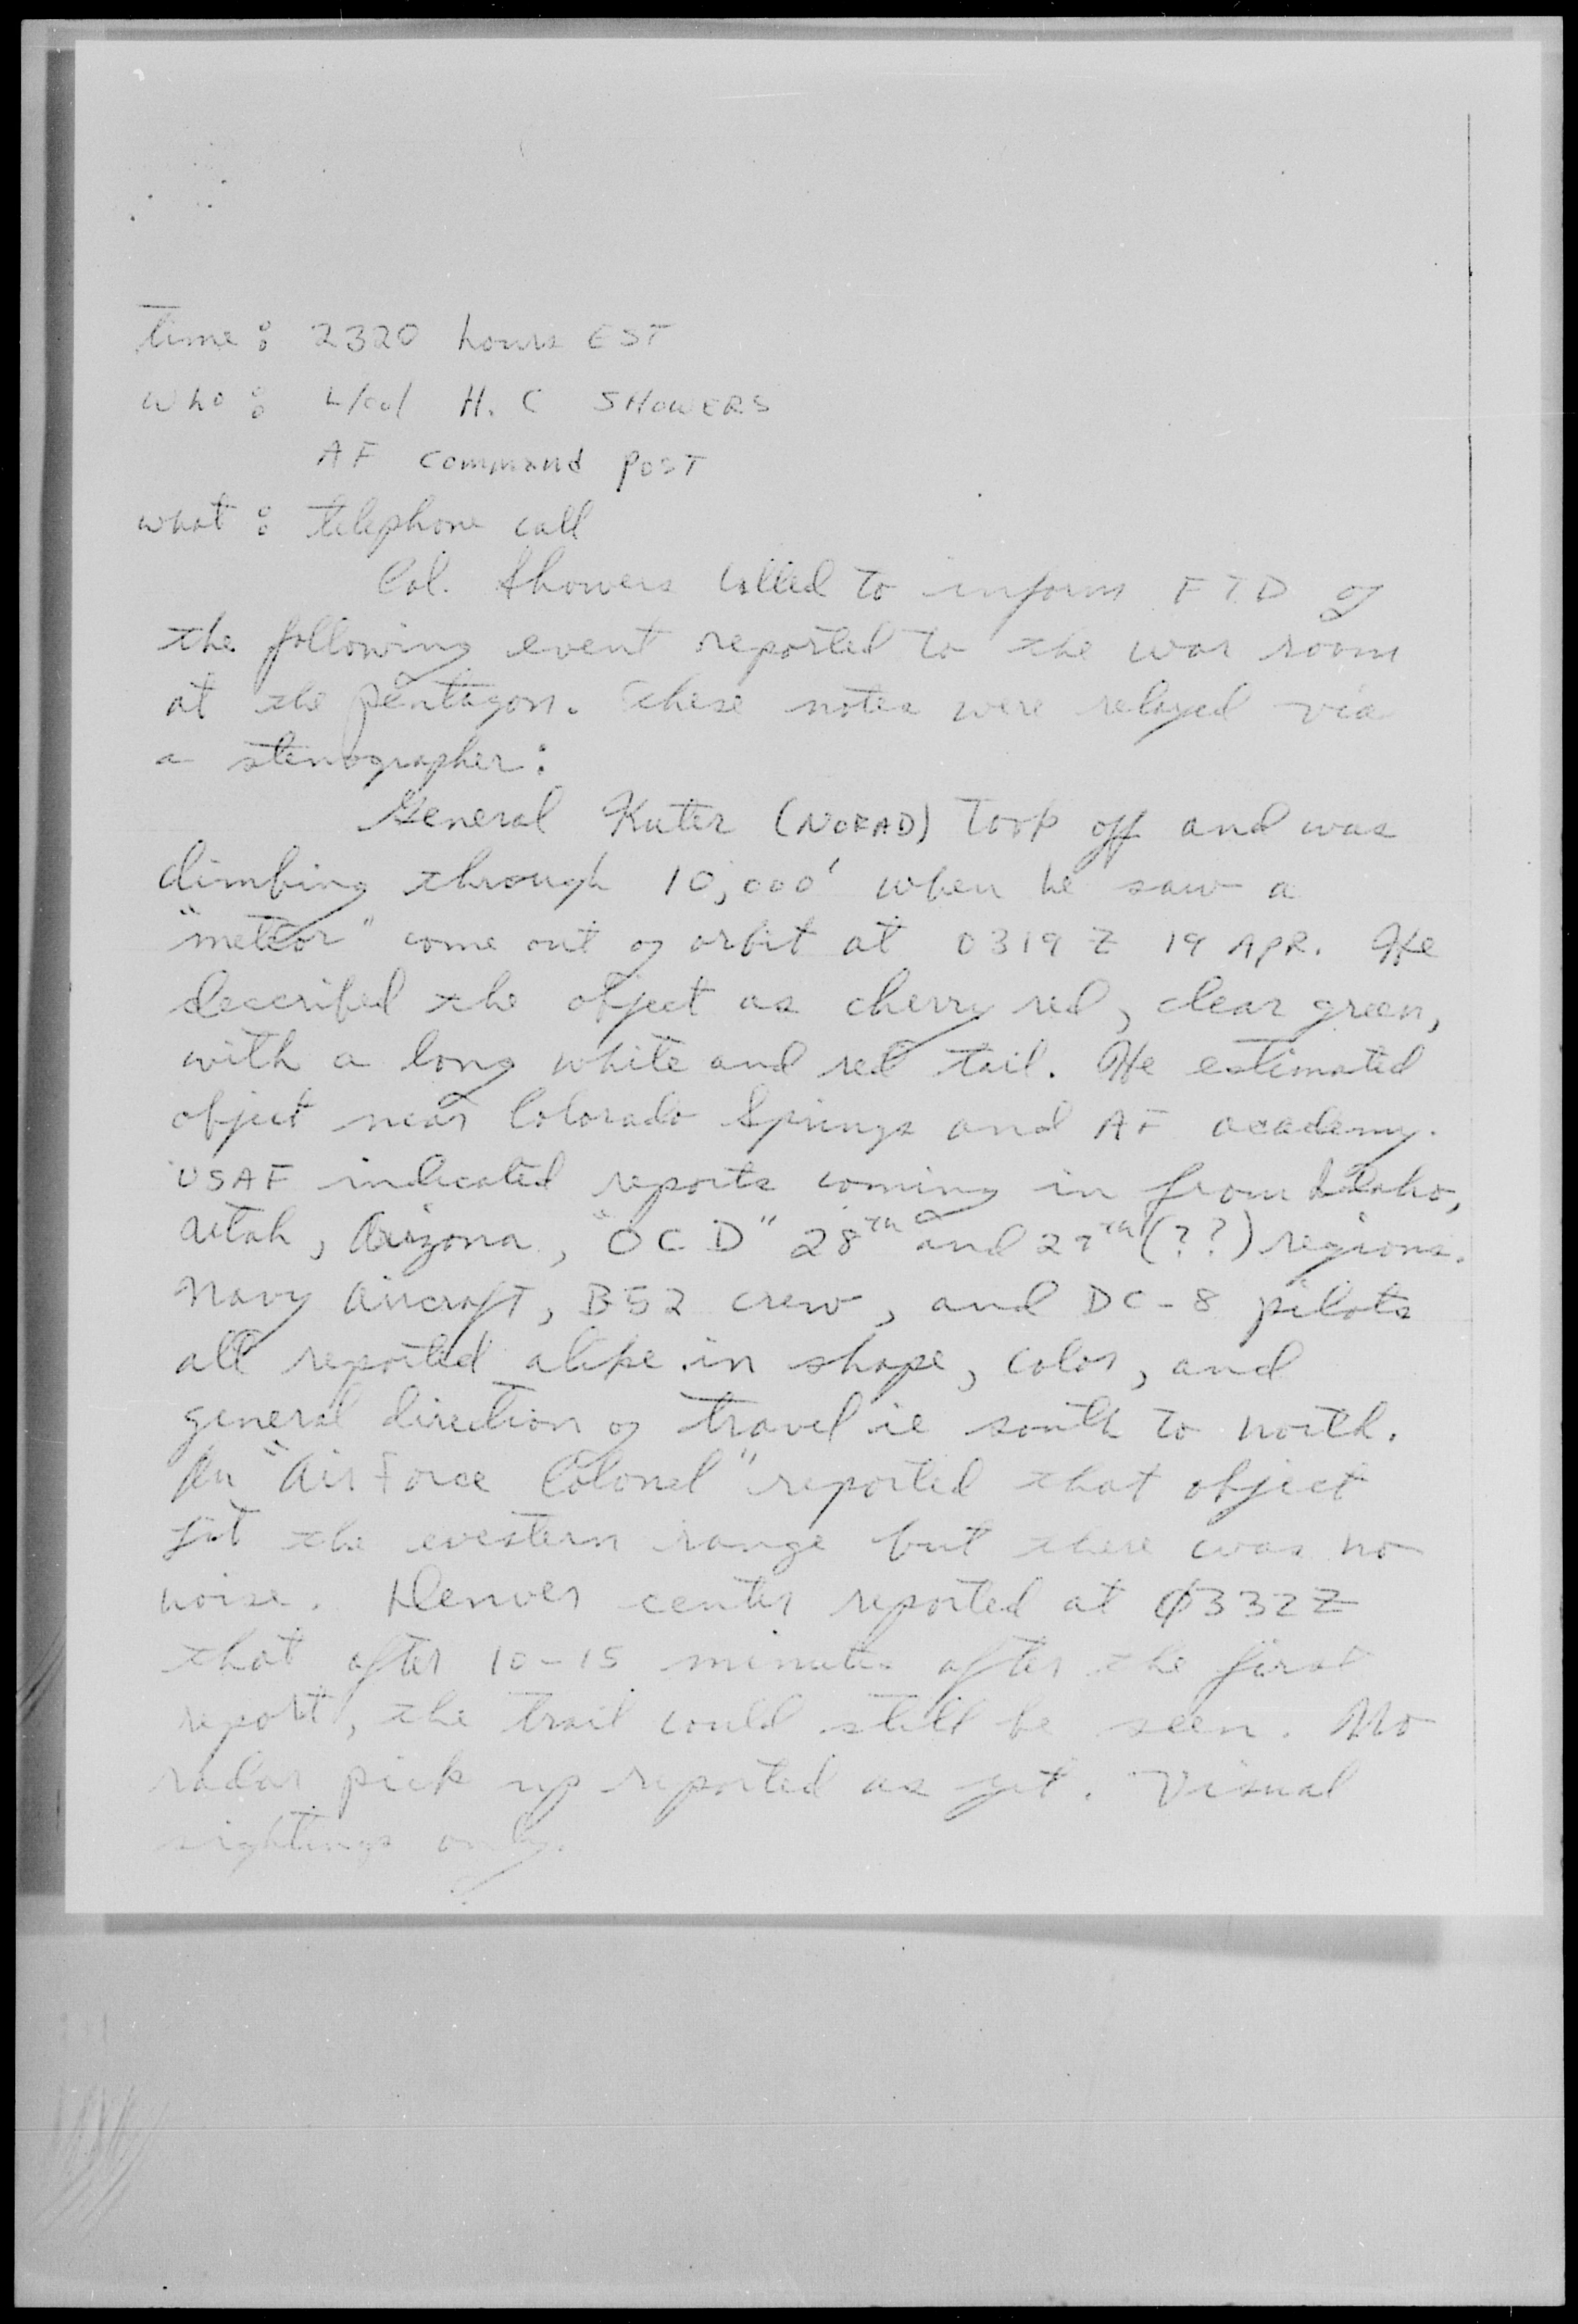 time: 2320 hours EST
who: L/Col H. C SHOWERS
AF Command Post
what: telephone call
Col. Showers called to inform FTD of
the following event reported to the war room
at the pentagon. These notes were relayed via
a stenographer:
General Kuter (NORAD) Took off and was
climbing through 10,000' when he saw a
"meteor" come out of orbit at 0319 Z 19 APR. He
described the object as cherry red, clear green,
with a long white and red tail. He estimated
object near Colorado Springs and AF academy.
USAF indicated reports coming in from Idaho,
Utah, Arizona, "OCD" 28th and 29th (??) regions.
Navy Aircraft, B52 crew, and DC-8 pilots
all reported alike in shape, color, and
general direction of travel ie south to north.
An "Air Force Colonel" reported that object
hit the western range but there was no
noise. Denver center reported at Ø332Z
that after 10-15 minutes after the first
report, the trail could still be seen. No
radar pick up reported as yet. Visual
sightings only.